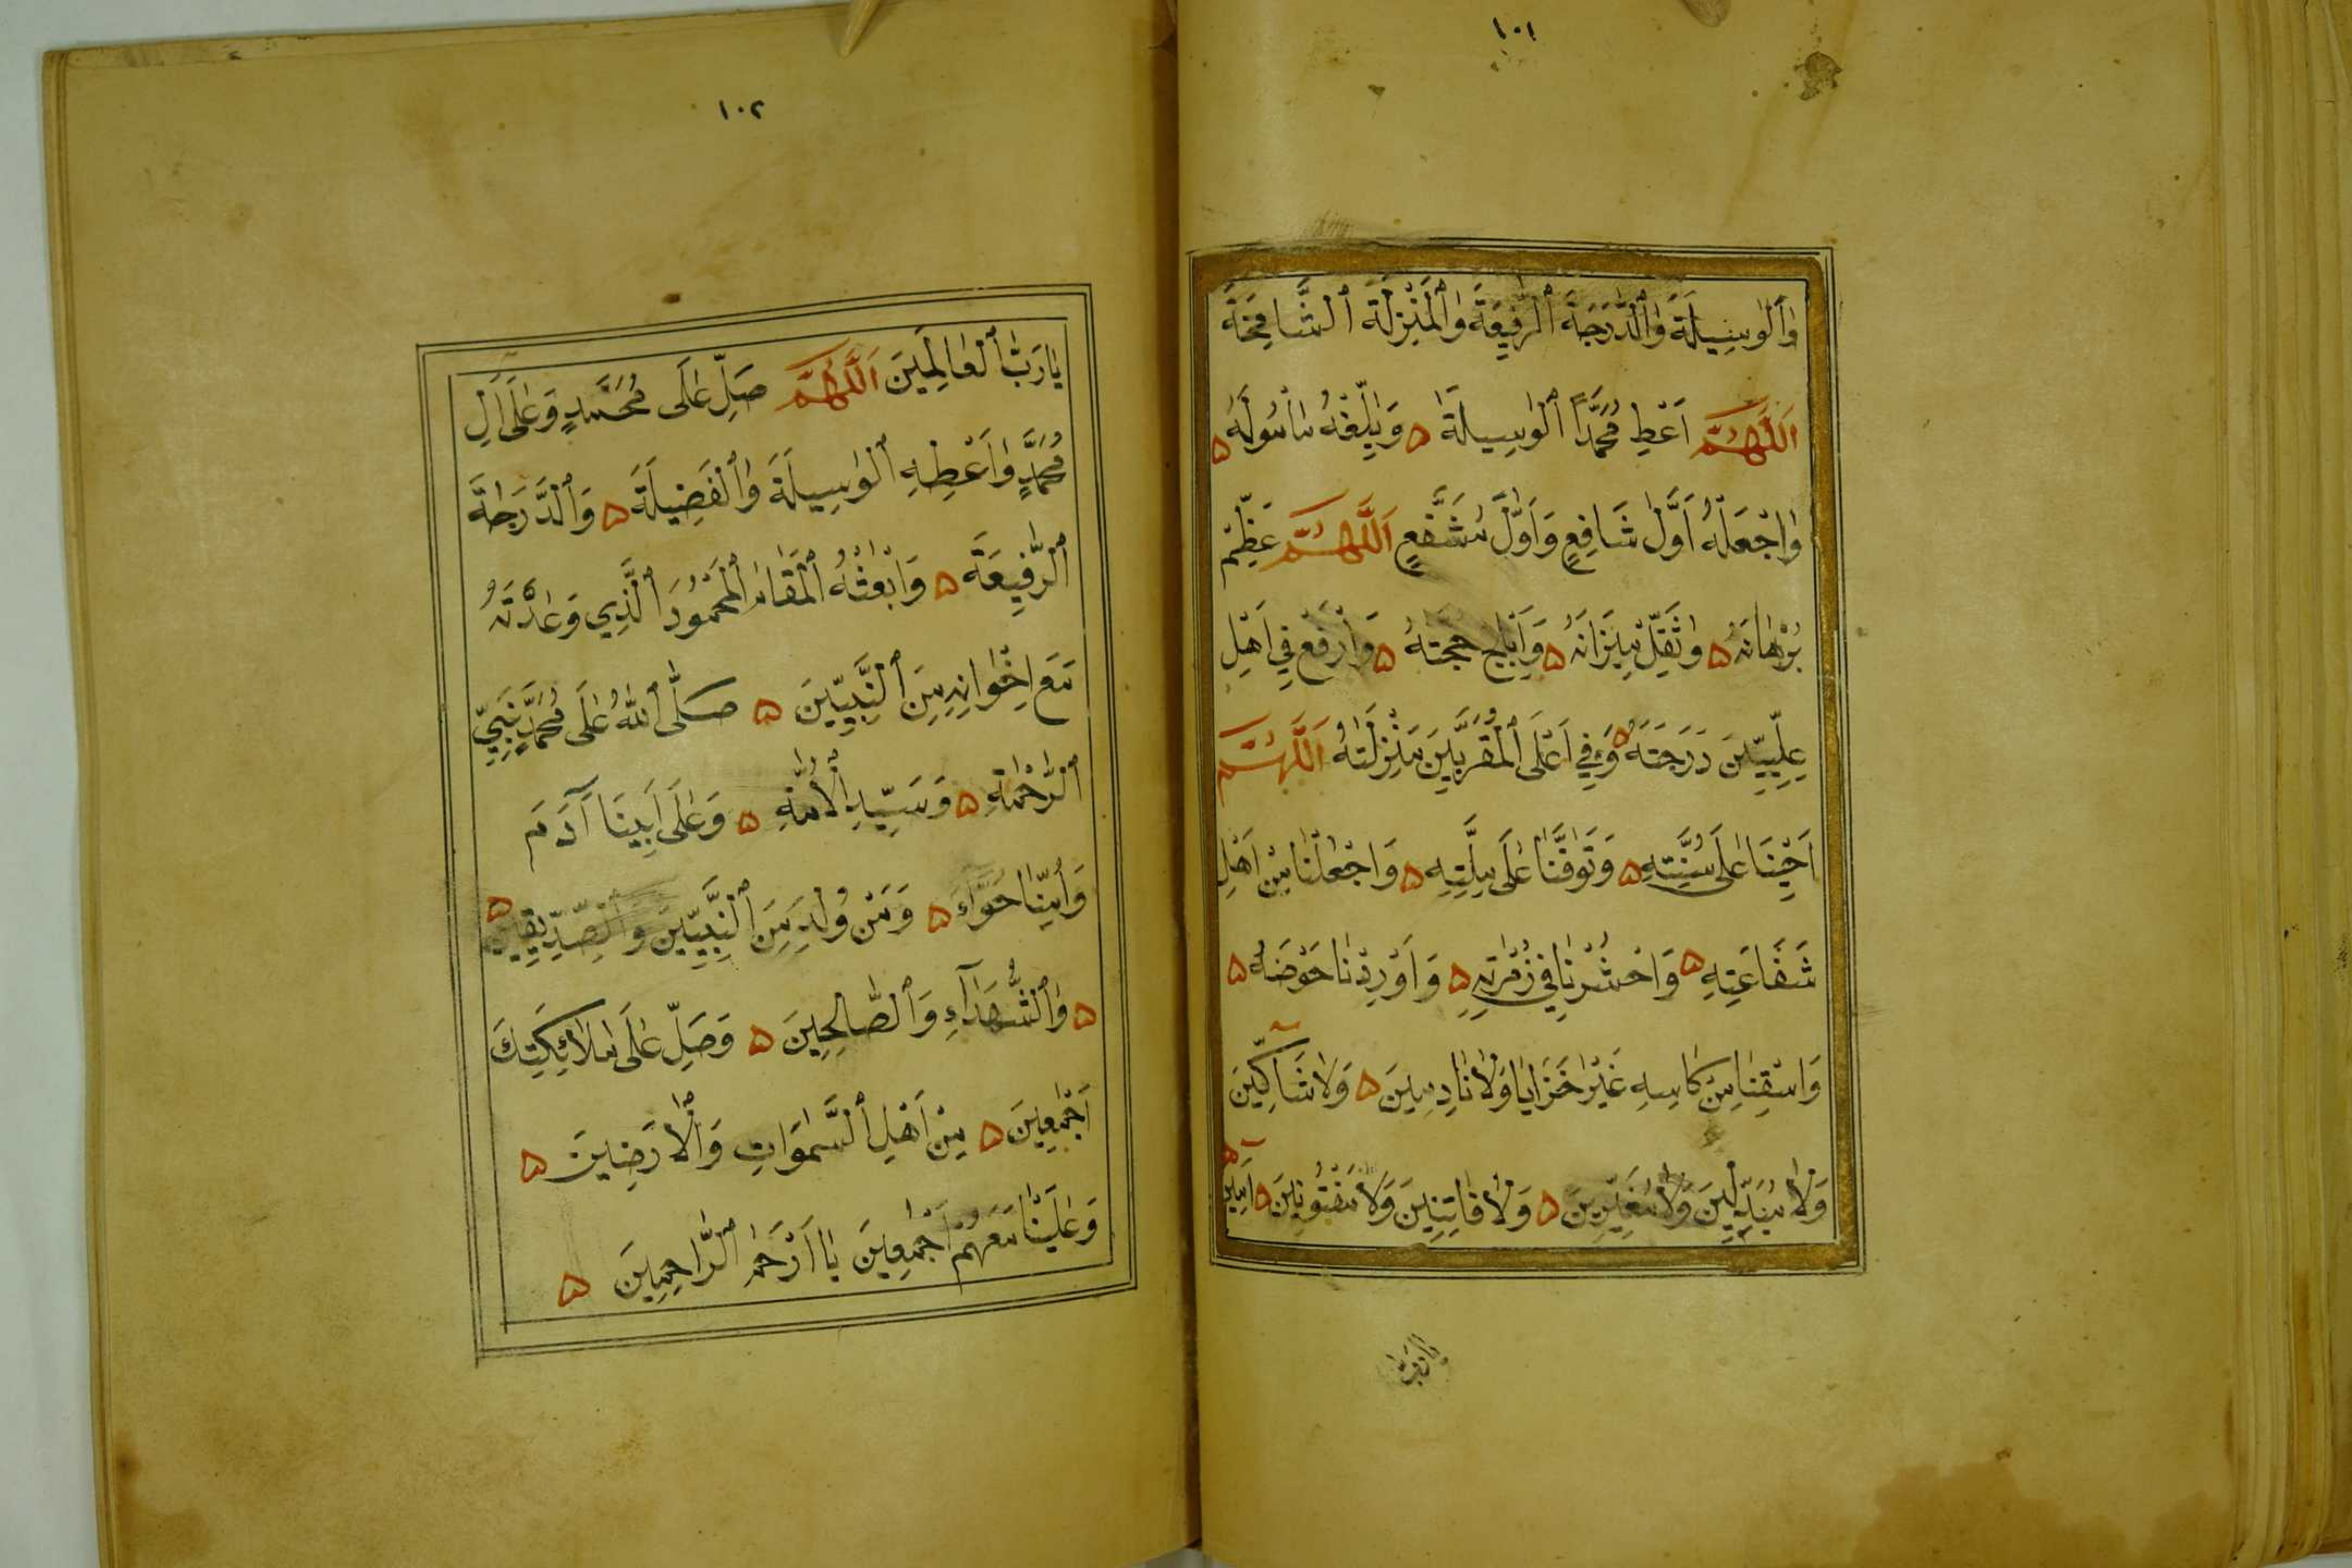 ١٠١
وَالْوَسِيلَةَ وَالدَّرَجَةَ الرَّفِيعَةَ وَالْمَنْزِلَةَ الشَّامِخَةَ
اَللَّهُمَّ اَعْطِ مُحَمَّدًا الْوَسِيلَةَ ۵ وَبَلِّغْهُ مَأْسُولَهُ ۵
وَاجْعَلْهُ اَوَّلَ شَافِعٍ وَاَوَّلَ مُشَفَّعٍ اَللَّهُمَّ عَظِّمْ
بُرْهَانَهُ ۵ وَثَقِّلْ مِيزَانَهُ ۵ وَاَبْلِجْ حُجَّتَهُ ۵ وَارْفَعْ فِي اَهْلِ
عِلِّيِّينَ دَرَجَتَهُ ۵ وَفِي اَعْلَى الْمُقَرَّبِينَ مَنْزِلَتَهُ اَللَّهُمَّ
اَحْيِنَا عَلَى سُنَّتِهِ ۵ وَتَوَفَّنَا عَلَى مِلَّتِهِ ۵ وَاجْعَلْنَا مِنْ اَهْلِ
شَفَاعَتِهِ ۵ وَاحْشُرْنَا فِي زُمْرَتِهِ ۵ وَاَوْرِدْنَا حَوْضَهُ ۵
وَاسْقِنَا مِنْ كَاسِهِ غَيْرَ خَزَايَا وَلَا نَادِمِينَ ۵ وَلَا شَاكِّينَ
وَلَا مُبَدِّلِينَ وَلَا مُغَيِّرِينَ ۵ وَلَا فَاتِنِينَ وَلَا مَفْتُونِينَ ۵ اَمِينَ
يا رب
١٠٢
يَا رَبَّ الْعَالَمِينَ اَللَّهُمَّ صَلِّ عَلَى مُحَمَّدٍ وَعَلَى اٰلِ
مُحَمَّدٍ وَاَعْطِهِ الْوَسِيلَةَ وَالْفَضِيلَةَ ۵ وَالدَّرَجَةَ
الرَّفِيعَةَ ۵ وَابْعَثْهُ الْمَقَامَ الْمَحْمُودَ الَّذِي وَعَدْتَهُ
مَعَ اِخْوَانِهِ مِنَ النَّبِيِّينَ ۵ صَلَّى اللّٰهُ عَلَى مُحَمَّدٍ نَبِيِّ
الرَّحْمَةِ ۵ وَسَيِّدِ الْاُمَّةِ ۵ وَعَلَى اَبِينَا آدَمَ
وَاُمِّنَا حَوَّاءَ ۵ وَمَنْ وُلِدَ مِنَ النَّبِيِّينَ وَالصِّدِّيقِينَ ۵
۵ وَالشُّهَدَآءِ وَالصَّالِحِينَ ۵ وَصَلِّ عَلَى مَلَائِكَتِكَ
اَجْمَعِينَ ۵ مِنْ اَهْلِ السَّمٰوَاتِ وَالْاَرَضِينَ ۵
وَعَلَيْنَا مَعَهُمْ اَجْمَعِينَ يَا اَرْحَمَ الرَّاحِمِينَ ۵